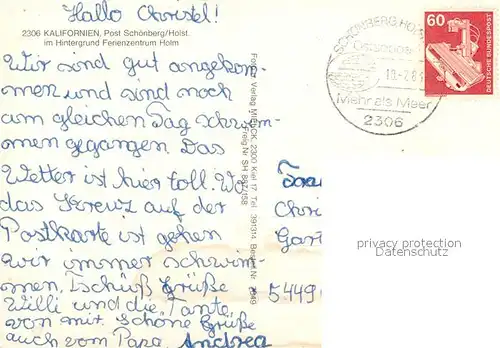 Hallo Christel!
2306 KALIFORNIEN, Post Schönberg/Holst.
im Hintergrund Ferienzentrum Holm
Wir sind gut angekom
men und sind noch
am gleichen Tag schwim-
men gegangen. Das
Wetter ist hier toll. Wo
das Kreuz auf der
Postkarte ist gehen
wir immer schwim
men. Tschüß Grüße
Willi und die Tante
von mir. Schöne Grüße
auch vom Papa. Andrea
Verlag
2300 Kiel 17 Tel. 391314
Freig Nr SH
SCHÖNBERG HOL
Ostseebad
Mehr als Meer
2306
60
DEUTSCHE BUNDESPOST
Chri
Gar
5449
privacy protection
Datenschutz